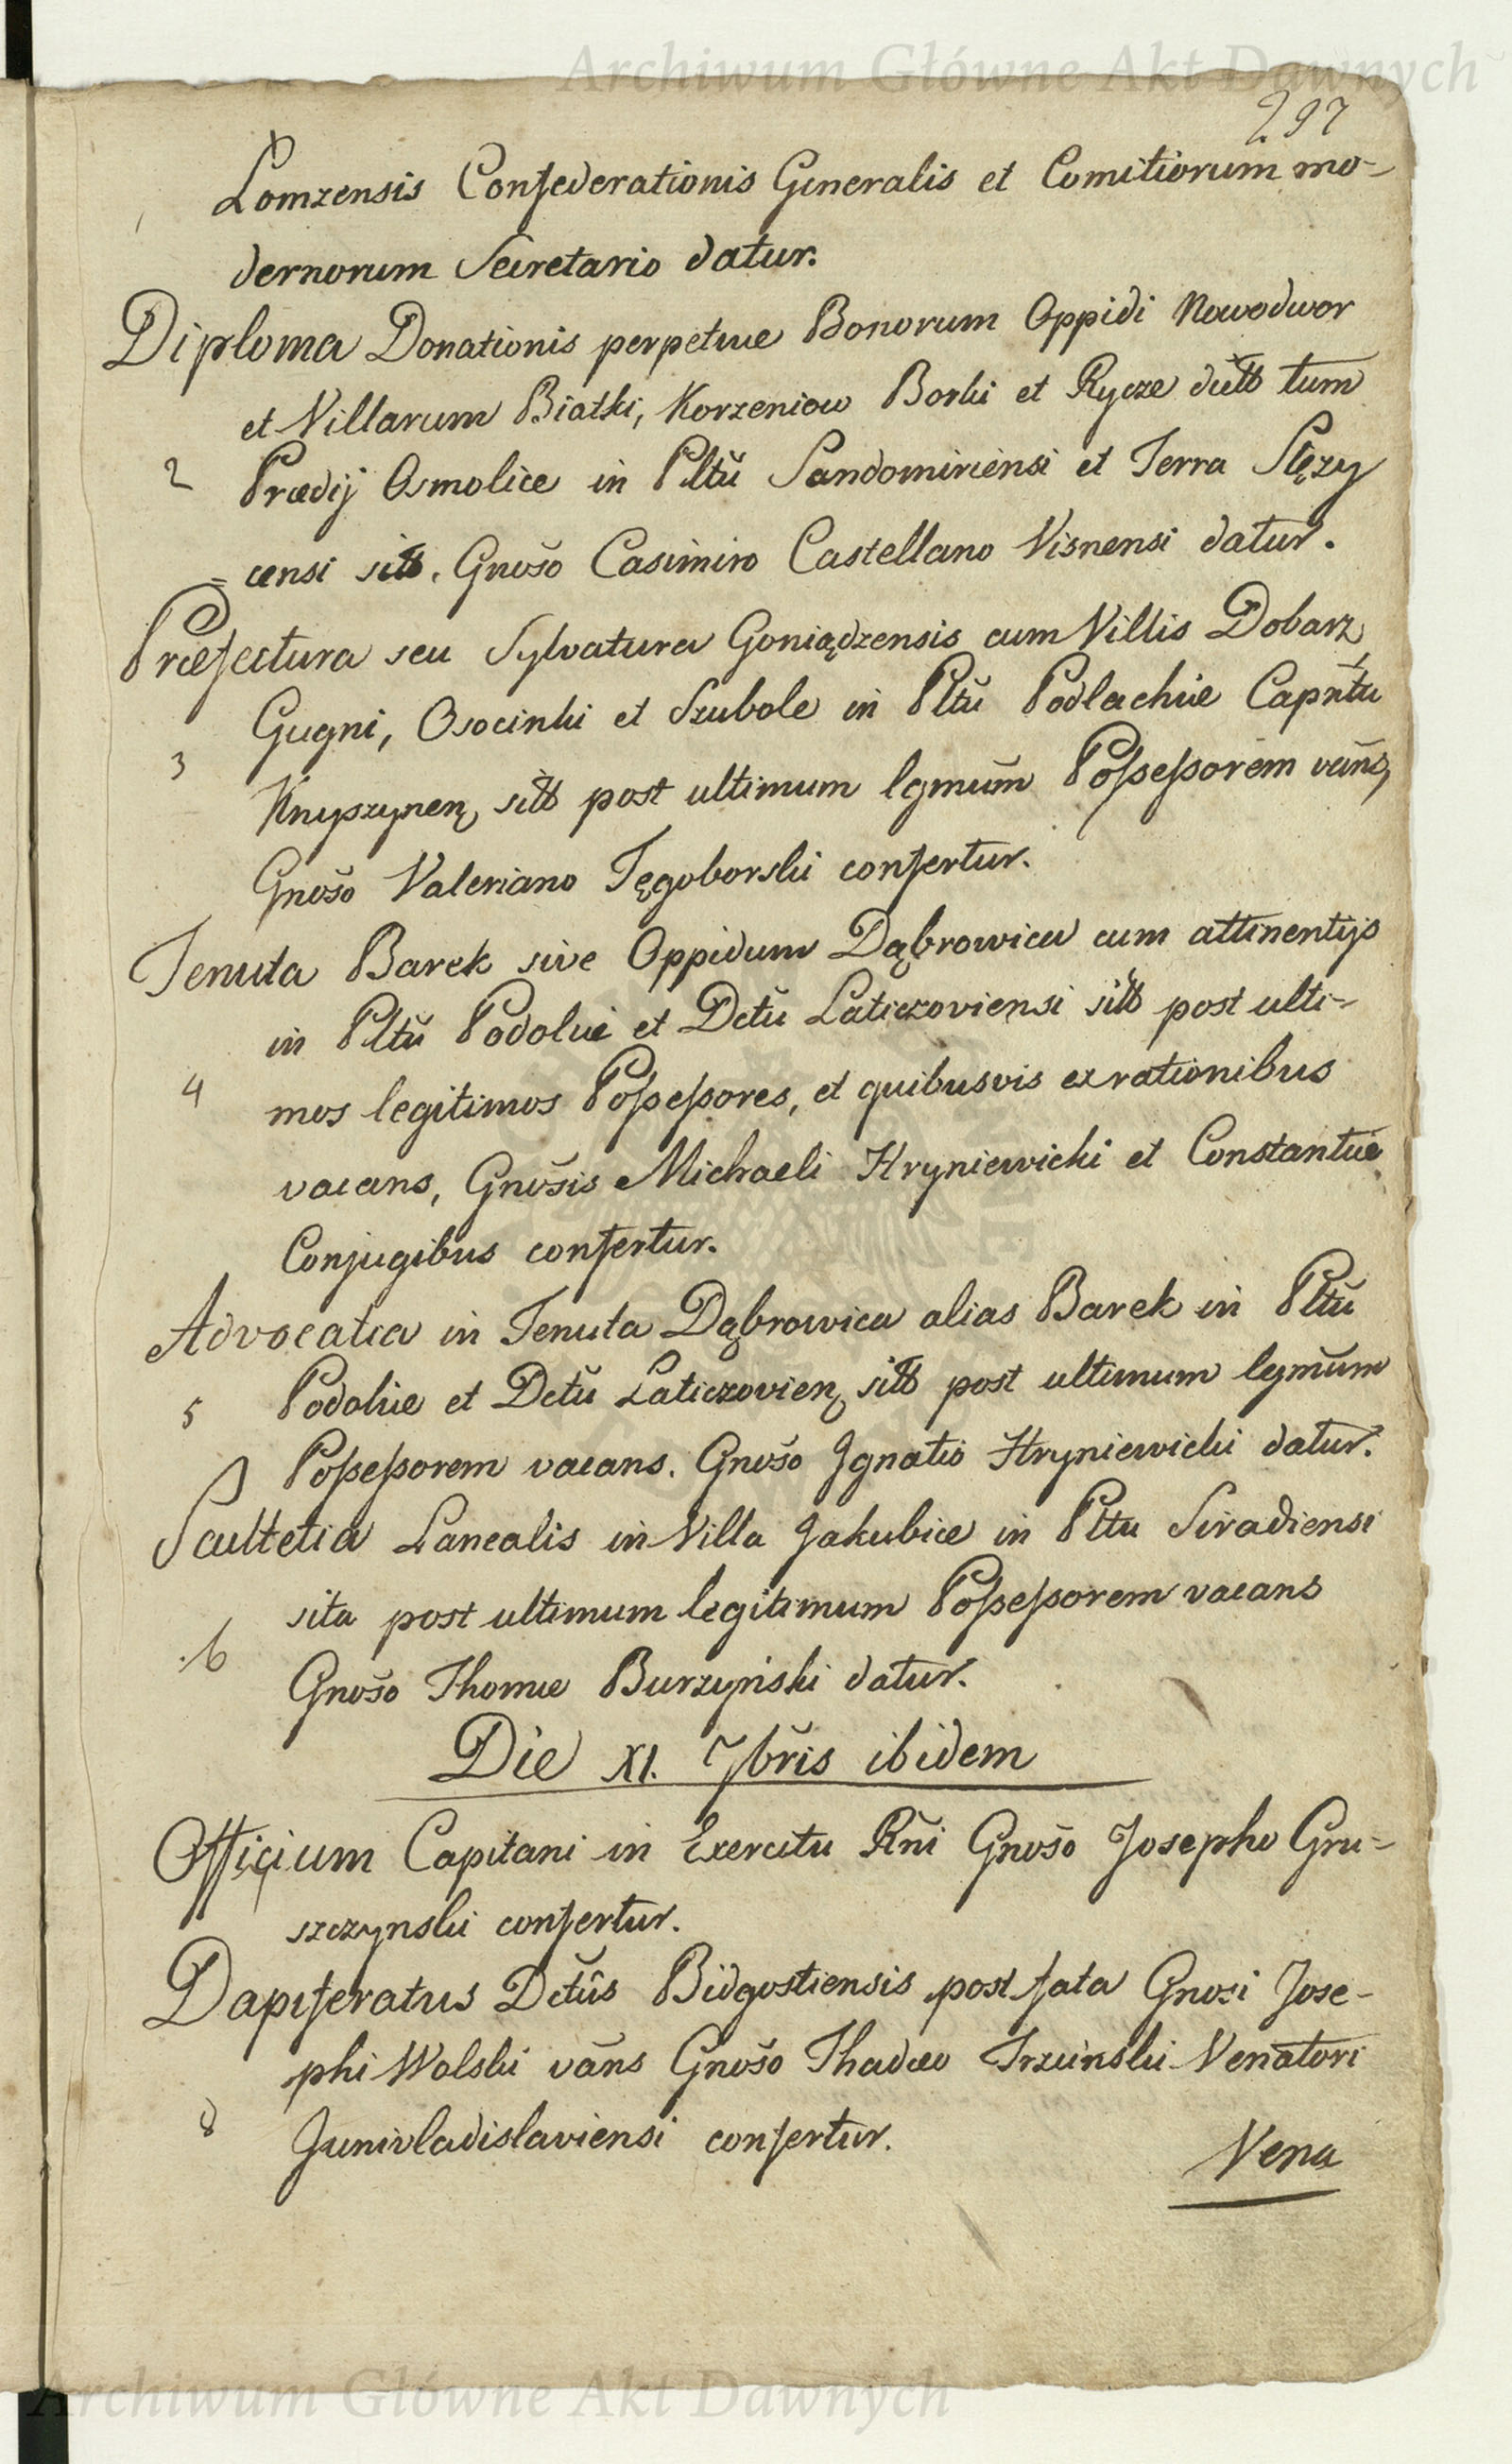 Archiwum Główne Akt Dawnych
297
Lomzensis Confederationis Generalis et Comitiorum mo-
dernorum Secretario datur.
Diploma Donationis perpetuæ Bonorum Oppidi Nowodwor
et Villarum Białki, Korzeniow Borki et Rycze dict̃t tum
2 Prædij Osmolice in Pltũ Sandomiriensi et Terra Stęzy
=censi sit̃t. Gnõso Casimiro Castellano Visnensi datur.
Præfectura seu Sylvatura Goniądzensis cum Villis Dobarz,
Gugni, Osocinki et Szubole in Pltũ Podlachiæ Capñtu
3 Knyszynen, sit̃t post ultimum lgmũm Possessorem vãns,
Gnõso Valeriano Tęgoborski confertur.
Tenuta Barek sive Oppidum Dąbrowica cum attinentijs
in Pltũ Podoliæ et Dctũ Laticzoviensi sit̃t post ulti-
4 mos legitimos Possessores, et quibusvis ex rationibus
vacans, Gnõsis Michaeli Hryniewicki et Constantiæ
Conjugibus confertur.
Advocatia in Tenuta Dąbrowica alias Barek in Pltũ
5 Podoliæ et Dctũ Laticzovien, sit̃t post ultimum lgmũm
Possessorem vacans. Gnõso Ignatio Hryniewicki datur.
Scultetia Lanealis in Villa Jakubice in Pltu Siradiensi
sita post ultimum legitimum Possessorem vacans
6 Gnõso Thomæ Burzyński datur.
Die XI. 7bris ibidem
Officium Capitani in Exercitu Rñi Gnõso Josepho Gru-
szczynski confertur.
Dapiferatus Dctũs Bidgostiensis post fata Gnosi Jose-
phi Wolski vãns Gnõso Thadæo Trzcinski Venatori
8 Junivladislaviensi confertur.
Vena
Archiwum Główne Akt Dawnych